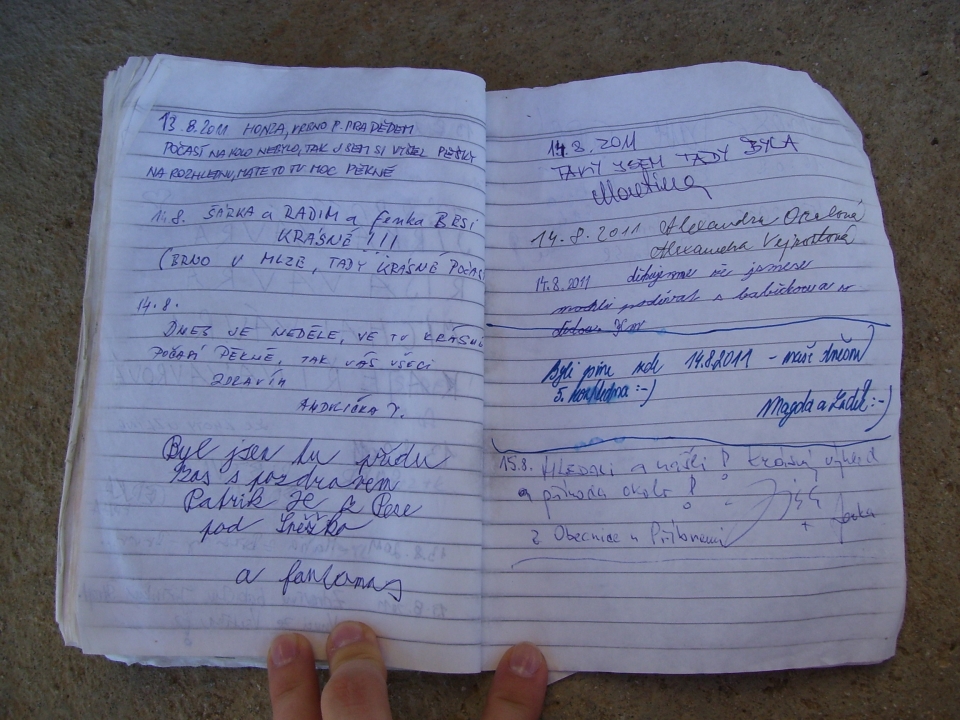 13.8.2011 HONZA, KRENO P. PRADĚDEM
POČASÍ NA KOLO NEBYLO, TAK JSEM SI VYŠEL PĚŠKY
NA ROZHLEDNU, MÁTE TO TU MOC PĚKNÉ
14.8. ŠÁRKA a RADIM a fenka BESI
KRÁSNÉ !!!
(BRNO V MLZE, TADY KRÁSNÉ POČASÍ
14.8.
DNES JE NEDĚLE, VE TU KRÁSNĚ
POČASÍ PĚKNÉ, TAK VÁS VŠECI
ZDRAVÍM
Byl jsen tu
zas s pozdravem
Patrik
pod Sněžka
a fantomas
14.8.2011
TAKY JSEM TADY BYLA
Martina
14.8.2011 Alexandra
Alexandra
14.8.2011 děkujeme že jsmese
mohli podívat s babičkou a
Byli jsme zde 14.8.2011 - naše dnešní
5. rozhledna :-)
Magda a Luděk :-)
15.8. HLEDALI a našli ! krásný výhled
a příroda okolo !
z Obecnice u Příbrami